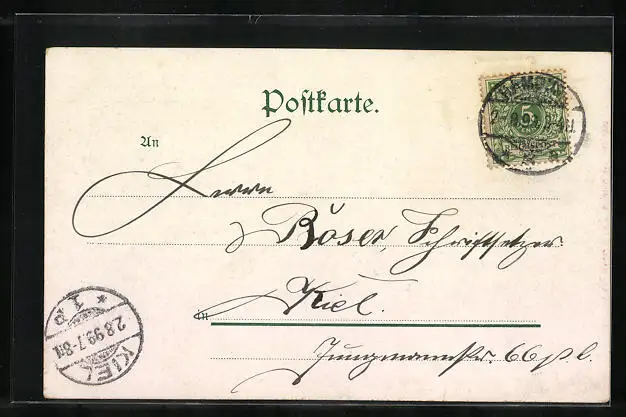 Postkarte.
HAMBURG
5
An
Herrn
Röser, Schriftsetzer
in Kiel.
Jungmannstr. 66 p. l.
KIEL
2.8.99.7-8N
1 a